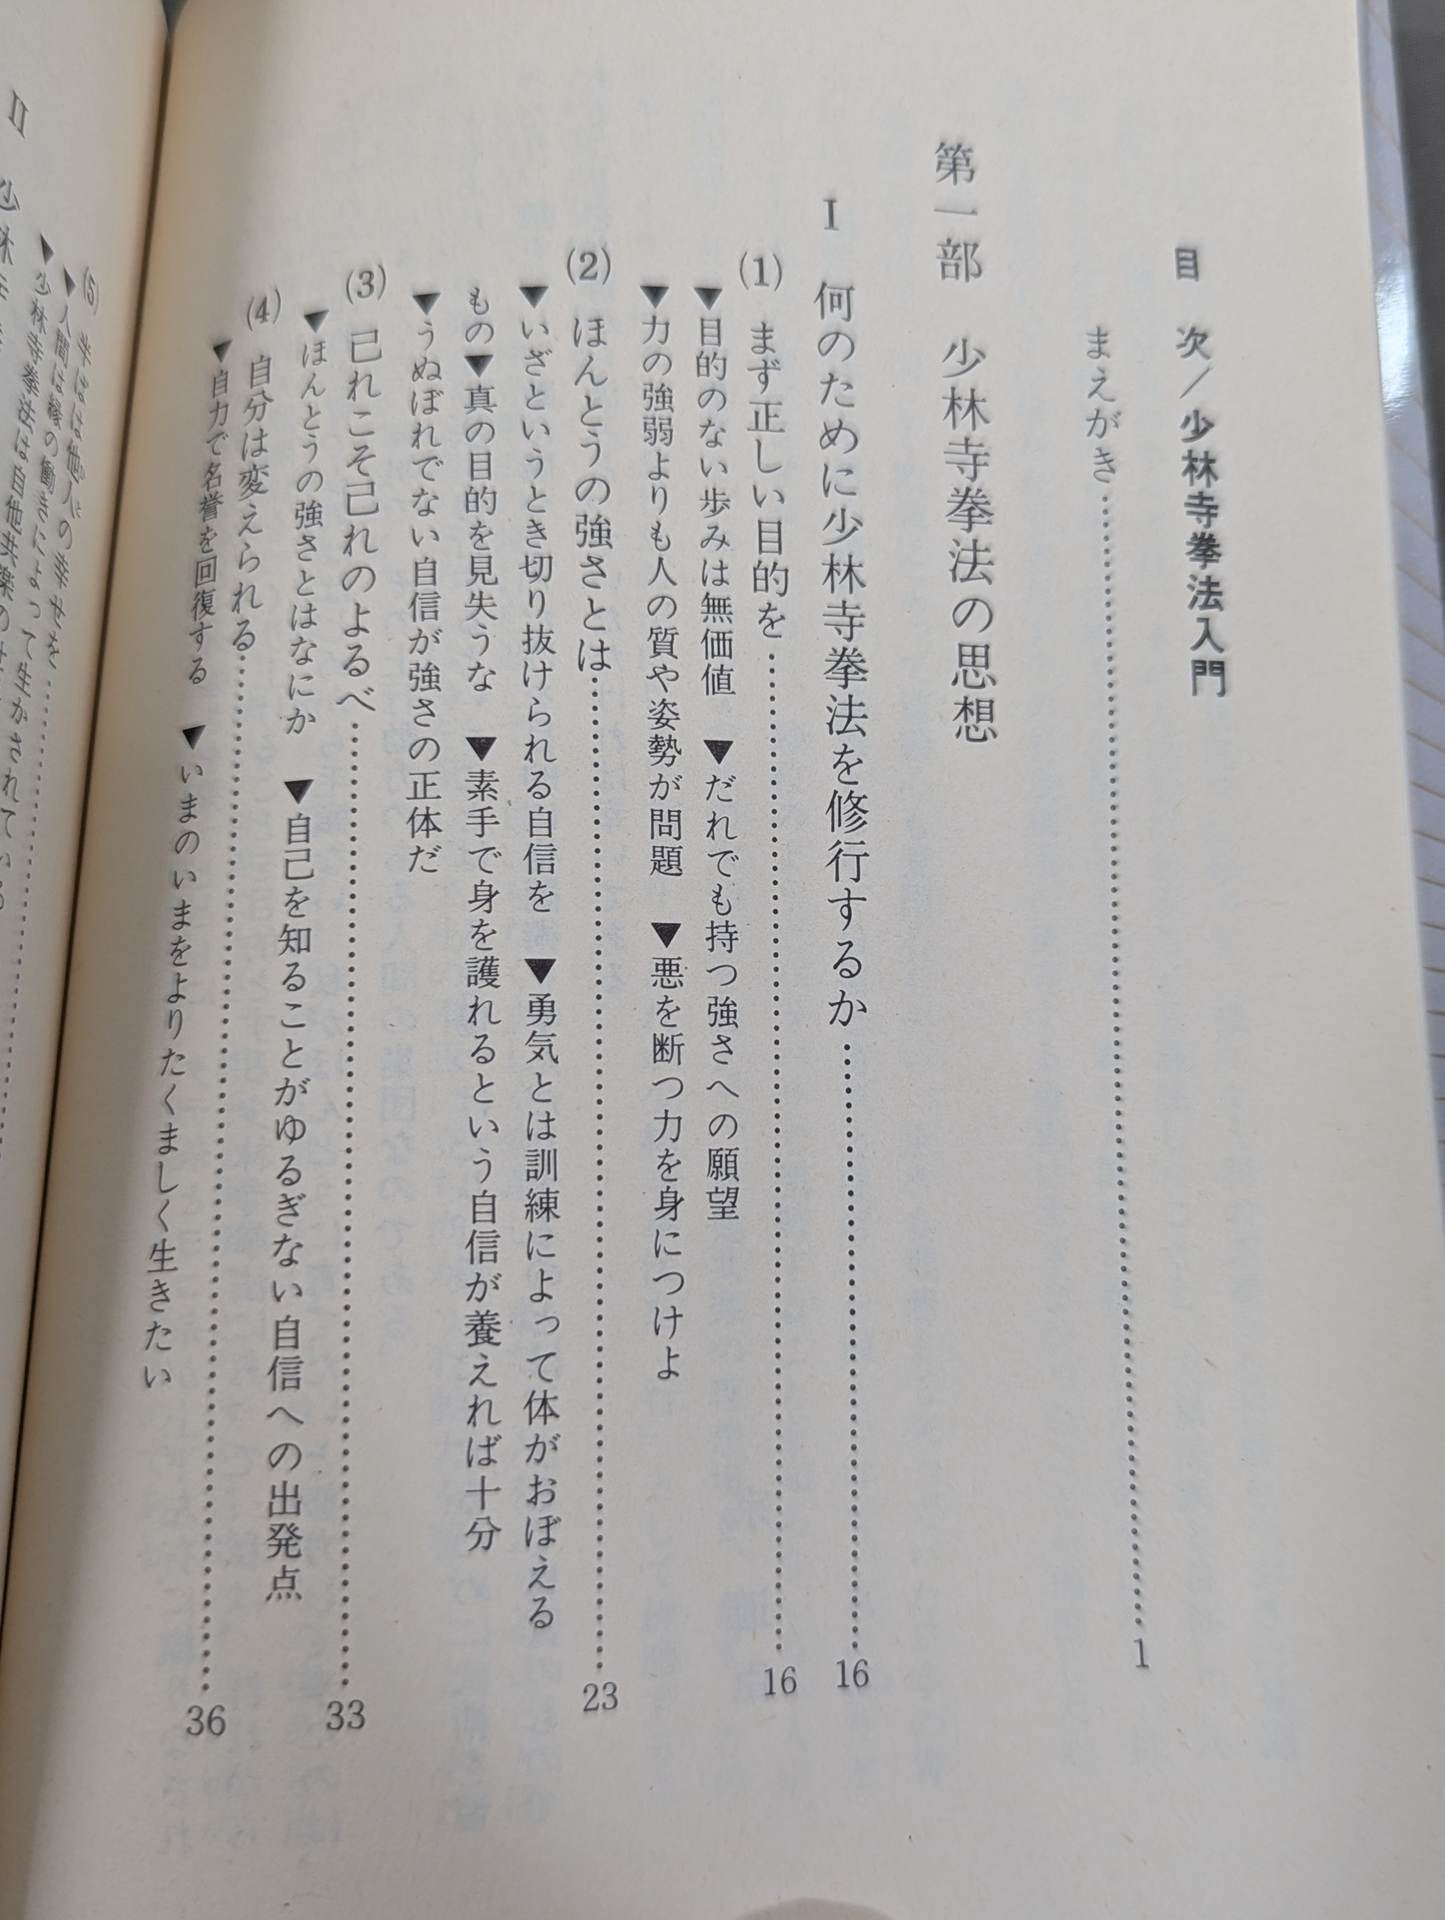 目 次／少林寺拳法入門
まえがき……………………1
第一部 少林寺拳法の思想
I 何のために少林寺拳法を修行するか……………………16
(1) まず正しい目的を……………………16
▼目的のない歩みは無価値 ▼だれでも持つ強さへの願望
▼力の強弱よりも人の質や姿勢が問題 ▼悪を断つ力を身につけよ
(2) ほんとうの強さとは……………………23
▼いざというとき切り抜けられる自信を ▼勇気とは訓練によって体がおぼえる
もの▼真の目的を見失うな ▼素手で身を護れるという自信が養えれば十分
▼うぬぼれでない自信が強さの正体だ
(3) 己れこそ己れのよるべ……………………33
▼ほんとうの強さとはなにか ▼自己を知ることがゆるぎない自信への出発点
(4) 自分は変えられる……………………36
▼自力で名誉を回復する ▼いまのいまをよりたくましく生きたい
(5) 半ばは他人の幸せを……………………
▼人間は縁の働きによって生かされている
▼少林寺拳法は自他共楽の
II 少林寺